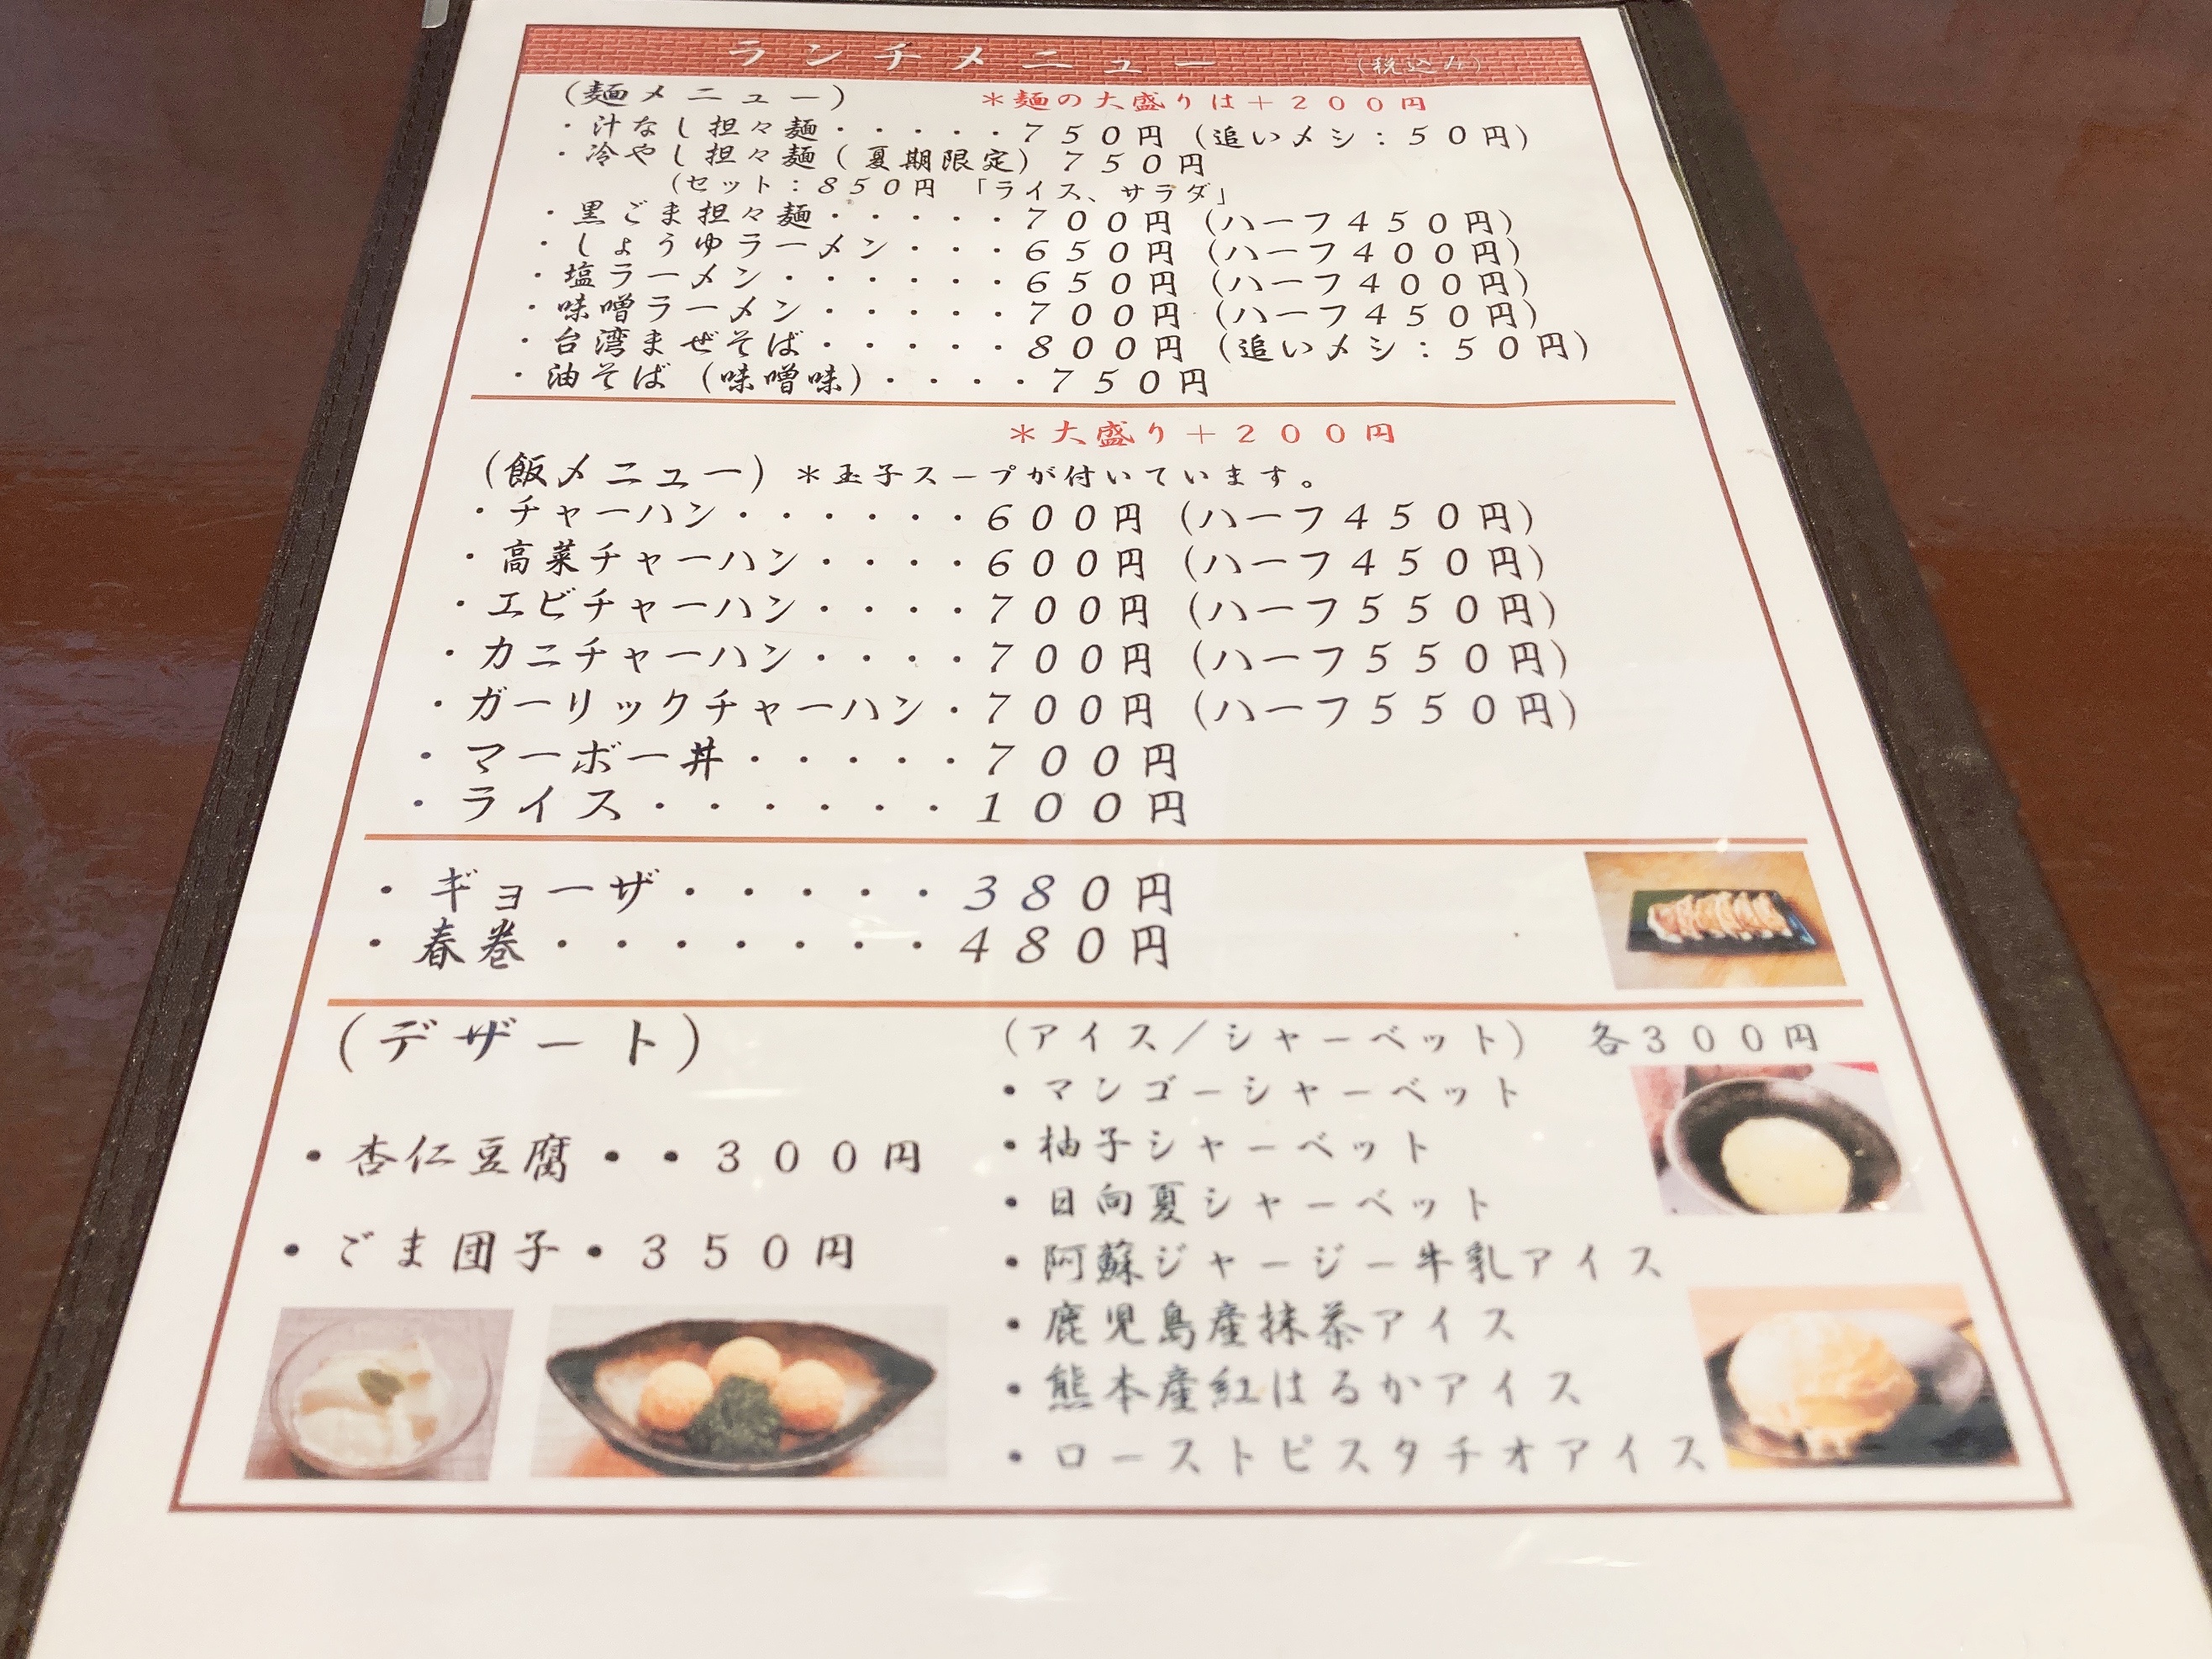 ランチメニュー (税込み)
(麺メニュー) *麺の大盛りは+200円
・汁なし担々麺・・・・・750円 (追いメシ:50円)
・冷やし担々麺(夏期限定) 750円
(セット:850円 「ライス、サラダ」
・黒ごま担々麺・・・・・700円 (ハーフ450円)
・しょうゆラーメン・・・650円 (ハーフ400円)
・塩ラーメン・・・・・・650円 (ハーフ400円)
・味噌ラーメン・・・・・700円 (ハーフ450円)
・台湾まぜそば・・・・・800円 (追いメシ:50円)
・油そば (味噌味)・・・・750円
*大盛り+200円
(飯メニュー) *玉子スープが付いています。
・チャーハン・・・・・・600円 (ハーフ450円)
・高菜チャーハン・・・・600円 (ハーフ450円)
・エビチャーハン・・・・700円 (ハーフ550円)
・カニチャーハン・・・・700円 (ハーフ550円)
・ガーリックチャーハン・700円 (ハーフ550円)
・マーボー丼・・・・・700円
・ライス・・・・・・・100円
・ギョーザ・・・・・380円
・春巻・・・・・・・480円
(デザート)
・杏仁豆腐・・300円
・ごま団子・350円
(アイス/シャーベット) 各300円
・マンゴーシャーベット
・柚子シャーベット
・日向夏シャーベット
・阿蘇ジャージー牛乳アイス
・鹿児島産抹茶アイス
・熊本産紅はるかアイス
・ローストピスタチオアイス